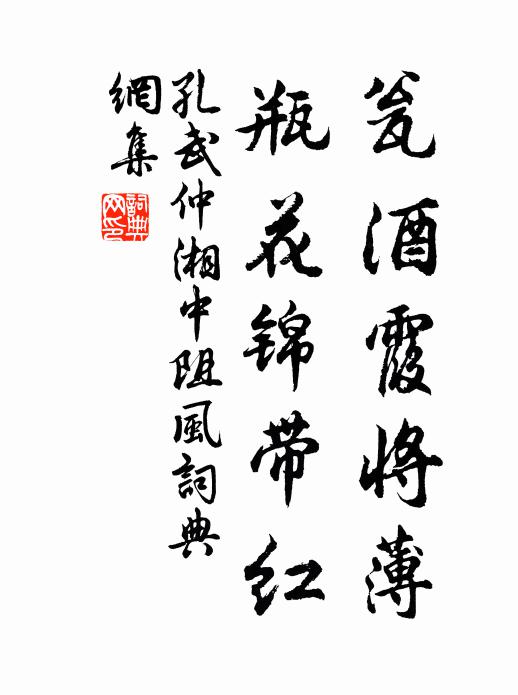 瓮酒霞将薄
瓶花锦带红
孔武仲湘中阻風詞典
網集
詞典网印